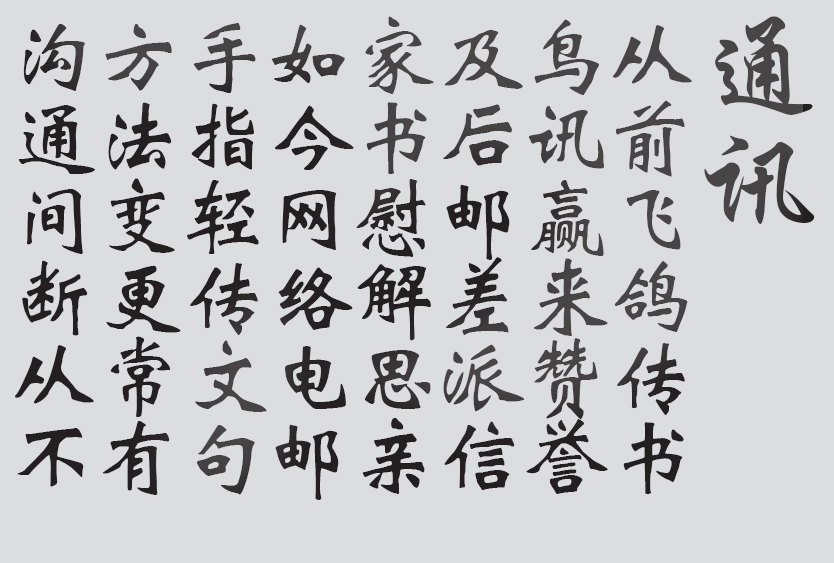 通讯
从前飞鸽传书
鸟讯赢来赞誉
及后邮差派信
家书慰解思亲
如今网络电邮
手指轻传文句
方法变更常有
沟通间断从不